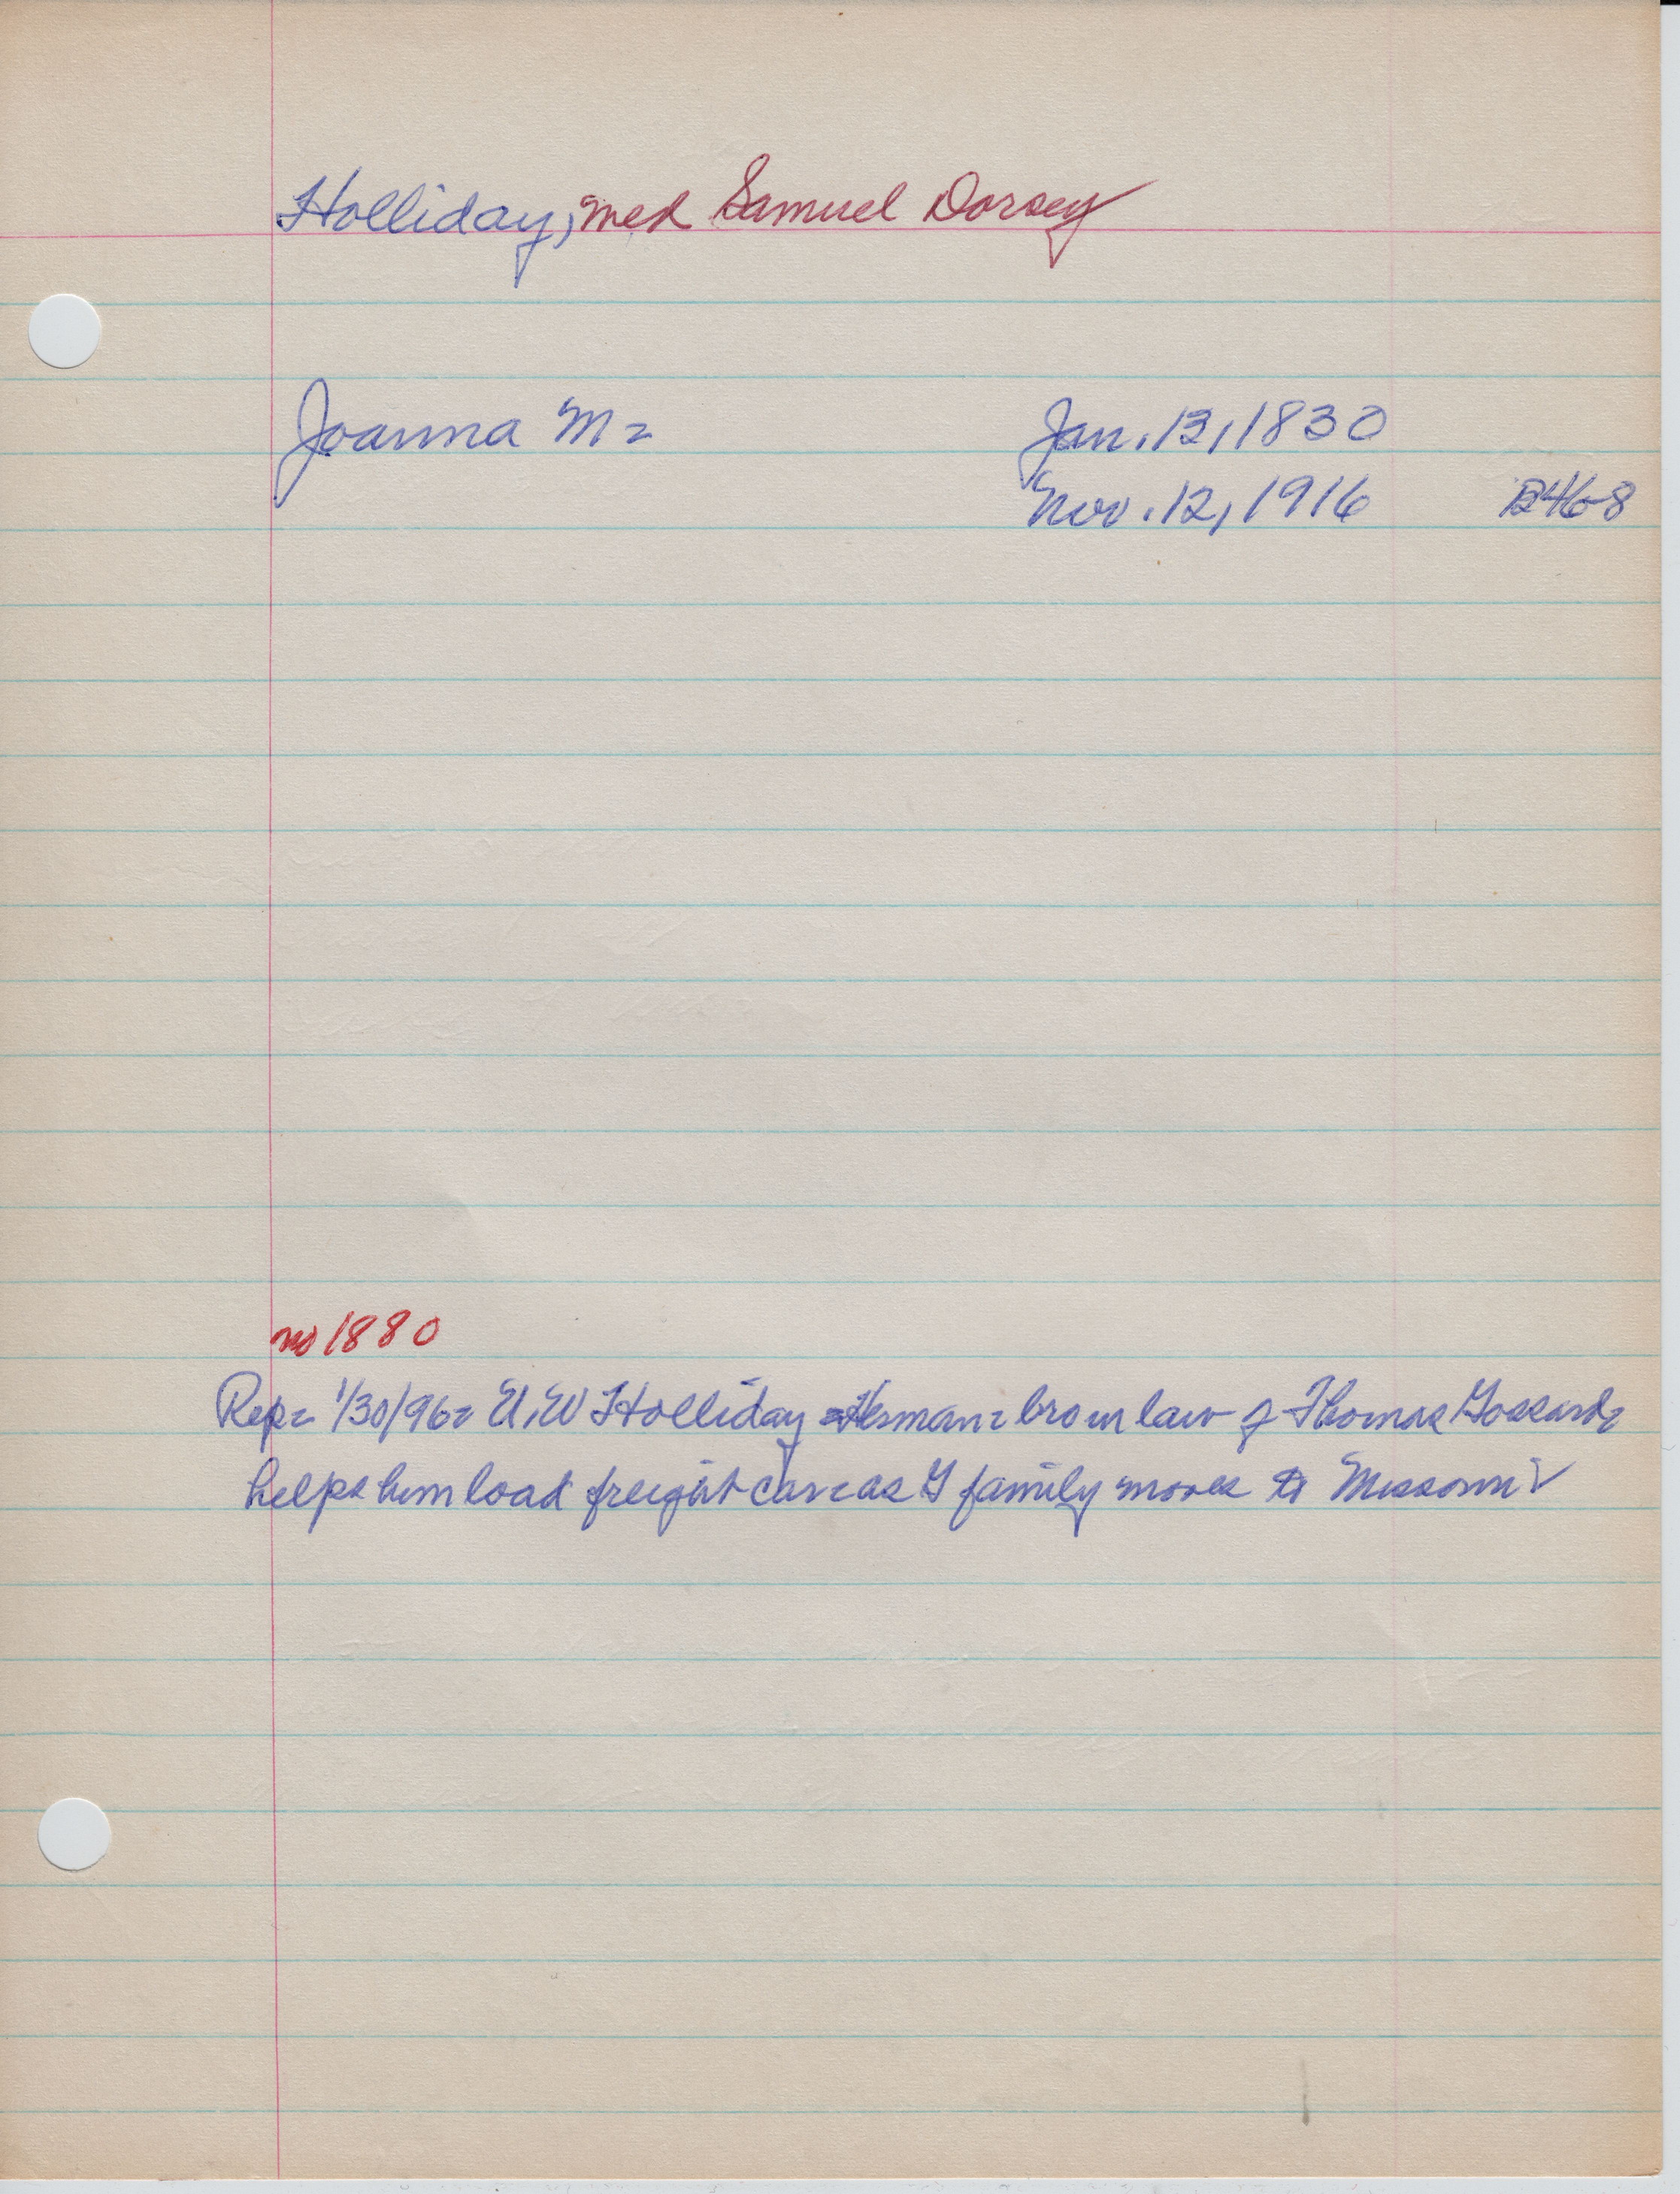 Holliday, med Samuel Dorsey
Joanna M = Jan. 13, 1830
Nov. 12, 1916 B46-8
no 1880
Rep = 1/30/96 = E. W Holliday = Herman = bro in law of Thomas Gossard =
helps him load freight car = as G family moves to Missouri